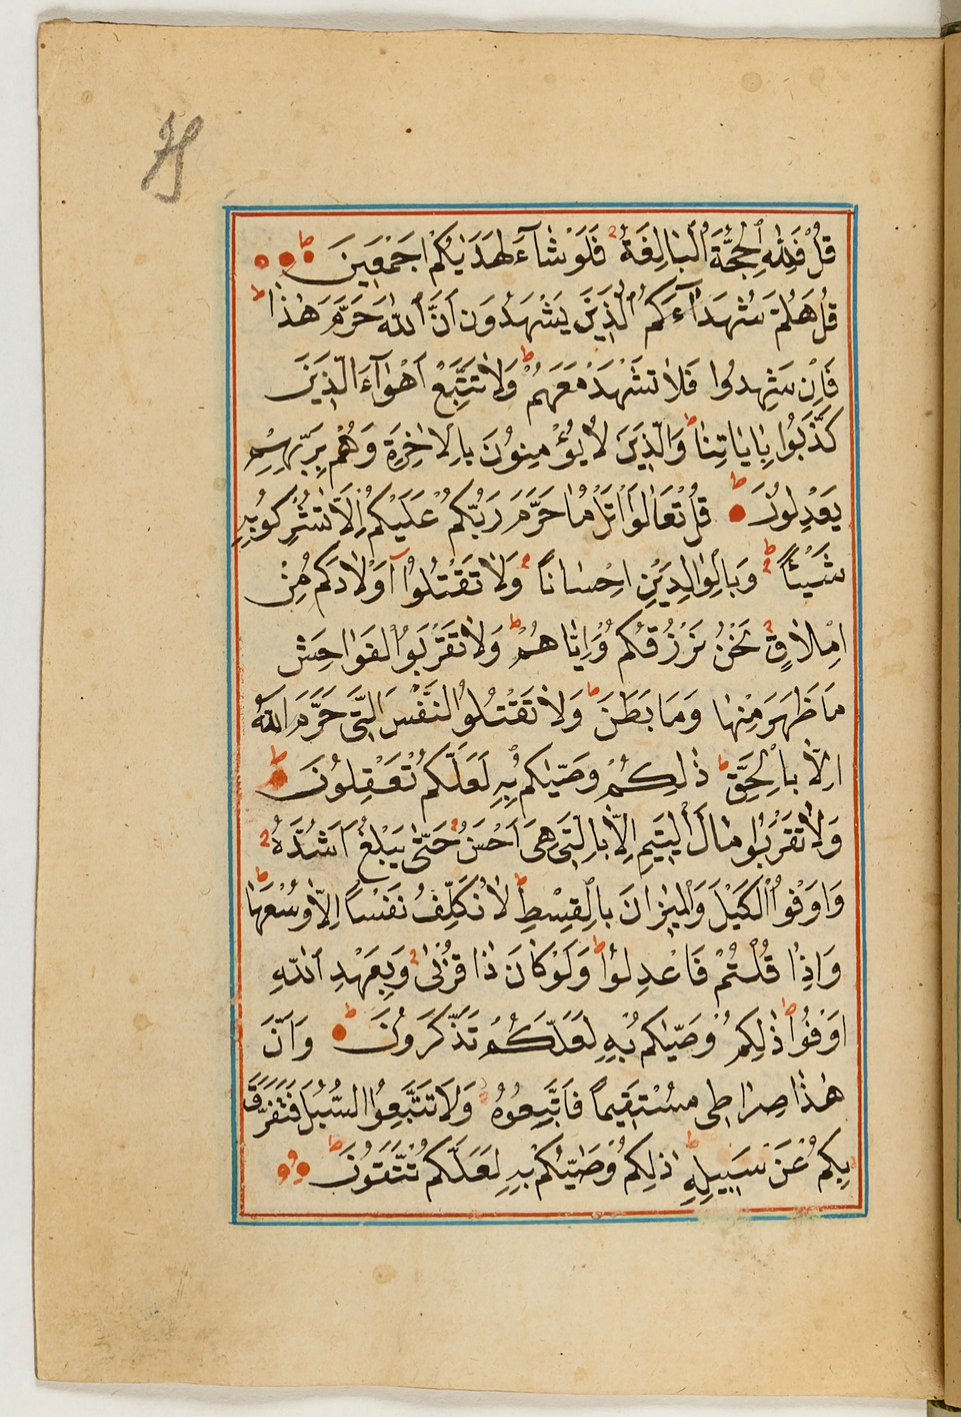 قُلْ فَلِلّٰهِ الْحُجَّةُ الْبَالِغَةُ فَلَوْ شَآءَ لَهَدٰيكُمْ اَجْمَعِينَ
قُلْ هَلُمَّ شُهَدَآءَكُمُ الَّذِينَ يَشْهَدُونَ اَنَّ اللّٰهَ حَرَّمَ هٰذَا
فَاِنْ شَهِدُوا فَلَا تَشْهَدْ مَعَهُمْ وَلَا تَتَّبِعْ اَهْوَآءَ الَّذِينَ
كَذَّبُوا بِاٰيَاتِنَا وَالَّذِينَ لَا يُؤْمِنُونَ بِالْاٰخِرَةِ وَهُمْ بِرَبِّهِمْ
يَعْدِلُونَ قُلْ تَعَالَوْا اَتْلُ مَا حَرَّمَ رَبُّكُمْ عَلَيْكُمْ اَلَّا تُشْرِكُوا بِهِ
شَيْئًا وَبِالْوَالِدَيْنِ اِحْسَانًا وَلَا تَقْتُلُوآ اَوْلَادَكُمْ مِنْ
اِمْلَاقٍ نَحْنُ نَرْزُقُكُمْ وَاِيَّاهُمْ وَلَا تَقْرَبُوا الْفَوَاحِشَ
مَا ظَهَرَ مِنْهَا وَمَا بَطَنَ وَلَا تَقْتُلُوا النَّفْسَ الَّتِى حَرَّمَ اللّٰهُ
اِلَّا بِالْحَقِّ ذٰلِكُمْ وَصّٰيكُمْ بِهِ لَعَلَّكُمْ تَعْقِلُونَ
وَلَا تَقْرَبُوا مَالَ الْيَتِيمِ اِلَّا بِالَّتِى هِىَ اَحْسَنُ حَتّٰى يَبْلُغَ اَشُدَّهُ
وَاَوْفُوا الْكَيْلَ وَالْمِيزَانَ بِالْقِسْطِ لَا نُكَلِّفُ نَفْسًا اِلَّا وُسْعَهَا
وَاِذَا قُلْتُمْ فَاعْدِلُوا وَلَوْ كَانَ ذَا قُرْبٰى وَبِعَهْدِ اللّٰهِ
اَوْفُوا ذٰلِكُمْ وَصّٰيكُمْ بِهِ لَعَلَّكُمْ تَذَكَّرُونَ وَاَنَّ
هٰذَا صِرَاطِى مُسْتَقِيمًا فَاتَّبِعُوهُ وَلَا تَتَّبِعُوا السُّبُلَ فَتَفَرَّقَ
بِكُمْ عَنْ سَبِيلِهِ ذٰلِكُمْ وَصّٰيكُمْ بِهِ لَعَلَّكُمْ تَتَّقُونَ